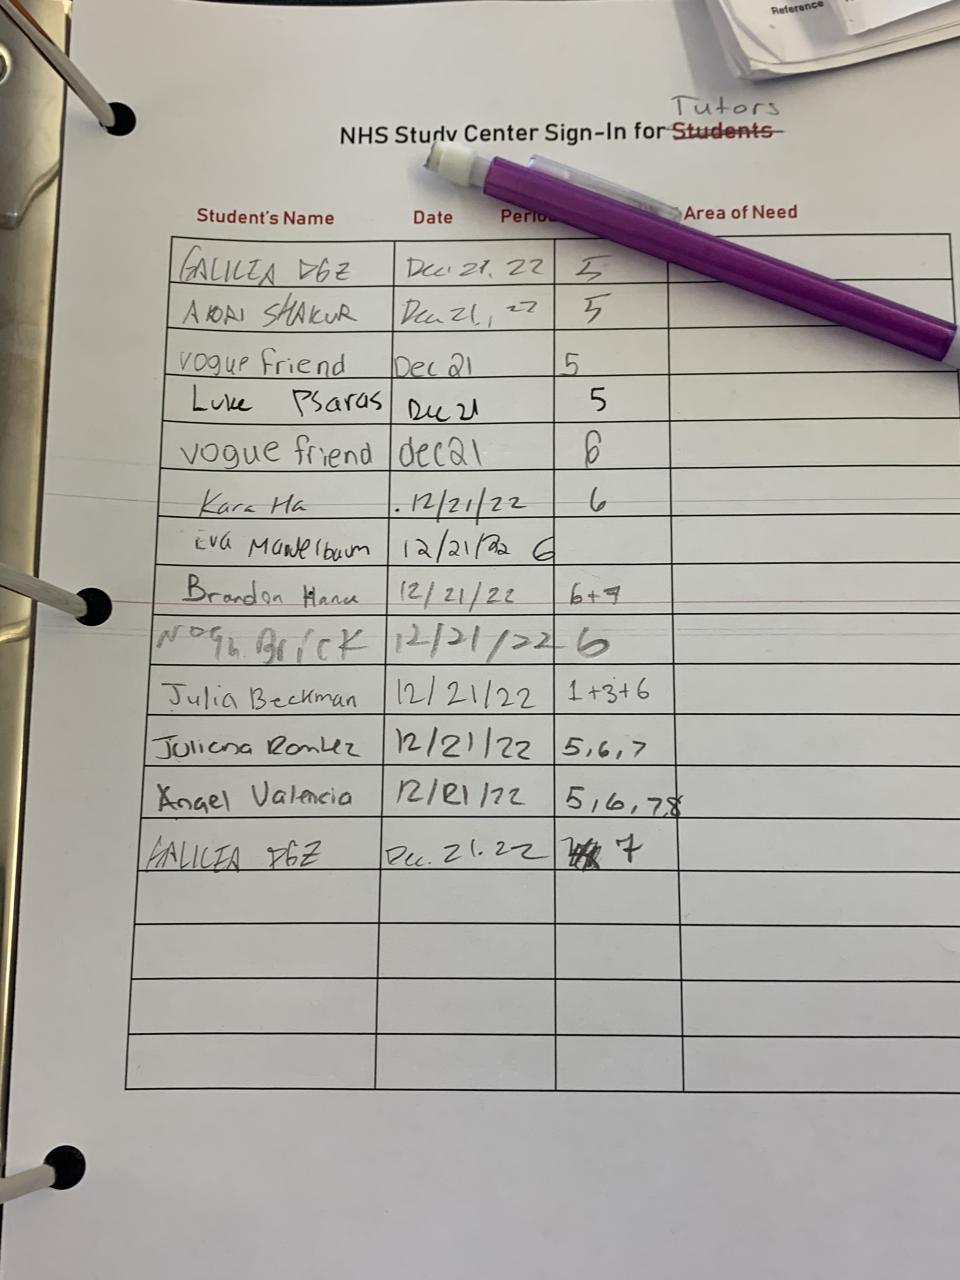 Reference
Tutors
NHS Study Center Sign-In for Students
Student's Name Date Perio Area of Need
GALILEA DGZ Dec. 21, 22 5
SHAKUR Dec 21, 22 5
vogue friend Dec 21 5
Luke Psaras Dec 21 5
vogue friend dec 21 6
Kara Ha 12/21/22 6
Eva Mandelbaum 12/21/22 6
Brandon 12/21/22 6+7
Noah Brick 12/21/22 6
Julia Beckman 12/21/22 1+3+6
Juliana 12/21/22 5,6,7
Angel Valencia 12/21/22 5,6,7,8
GALILEA DGZ Dec. 21. 22 7